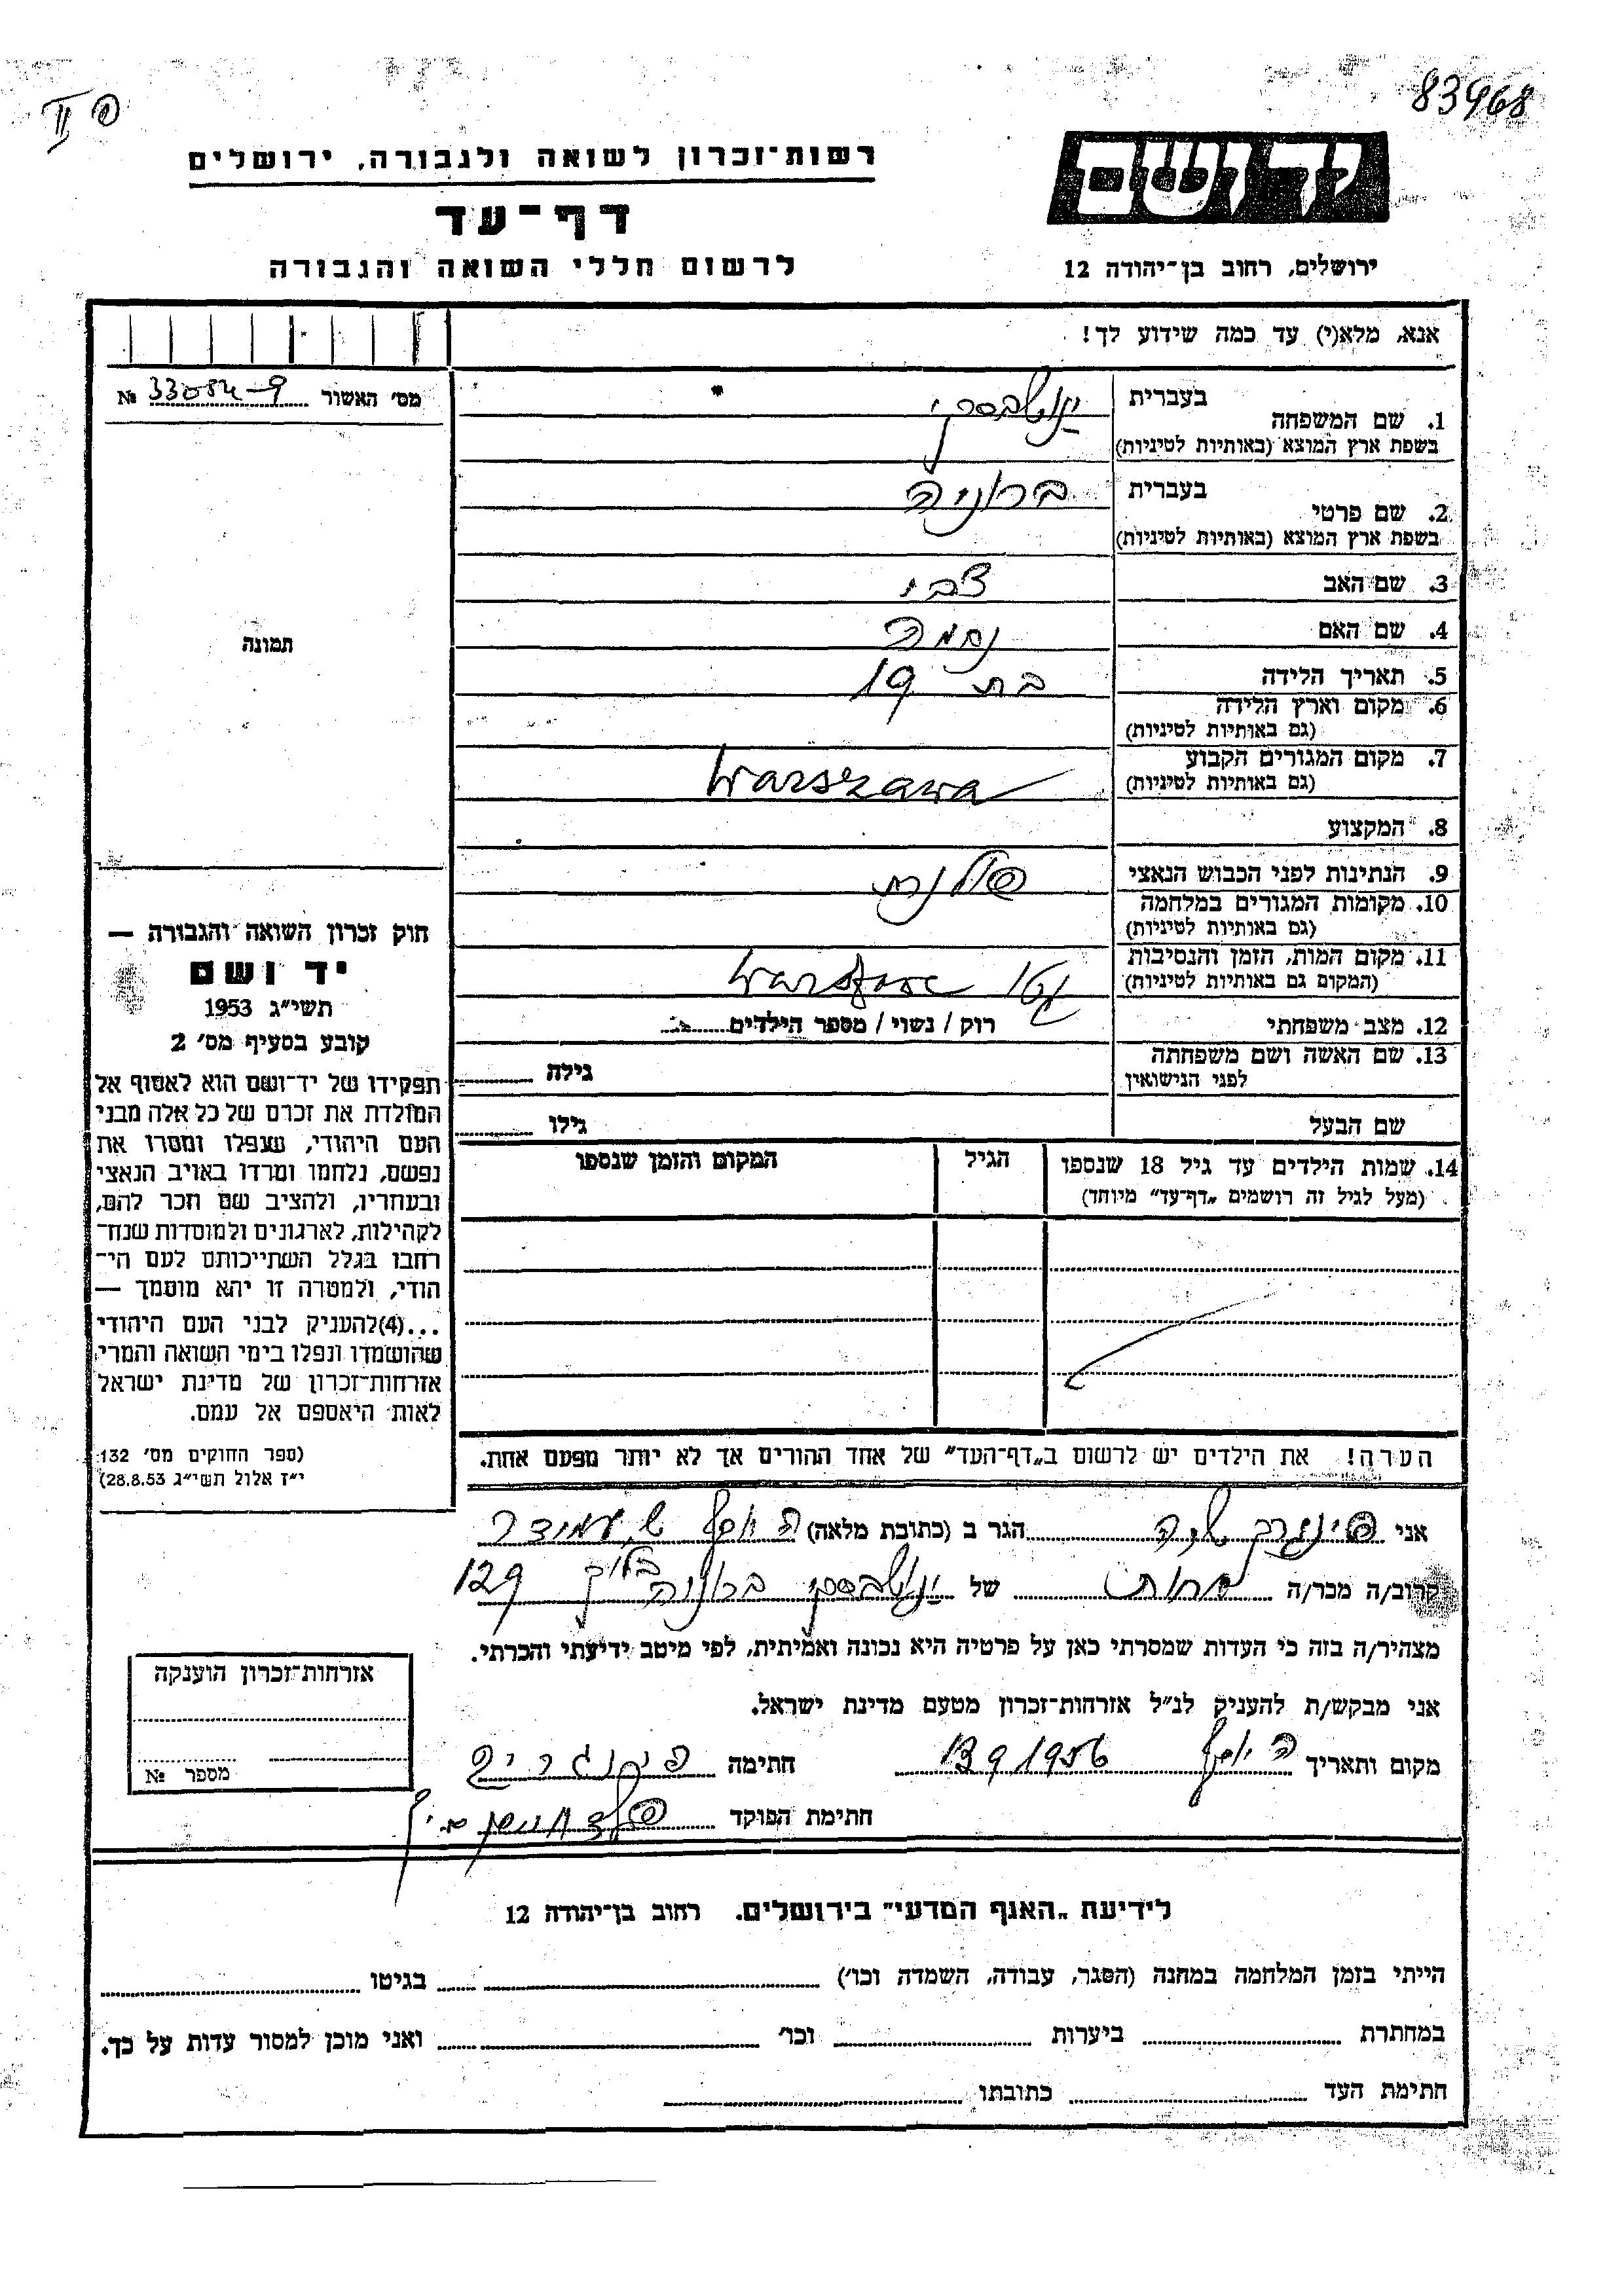 83968
פ II
יד ושם
רשות־זכרון לשואה ולגבורה, ירושלים
דף־עד
ירושלים, רחוב בן־יהודה 12
לרשום חללי השואה והגבורה
אנא, מלא(י) עד כמה שידוע לך!
מס׳ האשור 33084-9 №
1. שם המשפחה בעברית
בשפת ארץ המוצא (באותיות לטיניות)
2. שם פרטי בעברית ברוניה
בשפת ארץ המוצא (באותיות לטיניות)
3. שם האב צבי
4. שם האם נחמה
תמונה
5. תאריך הלידה בת 19
6. מקום וארץ הלידה
(גם באותיות לטיניות)
7. מקום המגורים הקבוע Warszawa
(גם באותיות לטיניות)
8. המקצוע
9. הנתינות לפני הכבוש הנאצי פולנית
10. מקומות המגורים במלחמה
(גם באותיות לטיניות)
11. מקום המות, הזמן והנסיבות גטו
(המקום גם באותיות לטיניות)
12. מצב משפחתי רוק / נשוי / מספר הילדים
13. שם האשה ושם משפחתה גילה
לפני הנישואין
שם הבעל גילו
14. שמות הילדים עד גיל 18 שנספו הגיל המקום והזמן שנספו
(מעל לגיל זה רושמים „דף־עד" מיוחד)
חוק זכרון השואה והגבורה —
יד ושם
תשי״ג 1953
קובע בסעיף מס׳ 2
תפקידו של יד־ושם הוא לאסוף אל
המולדת את זכרם של כל אלה מבני
העם היהודי, שנפלו ומסרו את
נפשם, נלחמו ומרדו באויב הנאצי
ובעוזריו, ולהציב שם וזכר להם,
לקהילות, לארגונים ולמוסדות שנח־
רבו בגלל השתייכותם לעם הי־
הודי, ולמטרה זו יהא מוסמך —
...(4) להעניק לבני העם היהודי
שהושמדו ונפלו בימי השואה והמרי
אזרחות־זכרון של מדינת ישראל
לאות היאספם אל עמם.
(ספר החוקים מס׳ 132
י״ז אלול תשי״ג 28.8.53)
הערה! את הילדים יש לרשום ב„דף־העד" של אחד ההורים אך לא יותר מפעם אחת.
אני הגר ב (כתובת מלאה)
קרוב/ה מכר/ה אחות של ברוניה בלוק 129
מצהיר/ה בזה כי העדות שמסרתי כאן על פרטיה היא נכונה ואמיתית, לפי מיטב ידיעתי והכרתי.
אני מבקש/ת להעניק לנ״ל אזרחות־זכרון מטעם מדינת ישראל.
מקום ותאריך 13 9 1956 חתימה
חתימת הפוקד
אזרחות־זכרון הוענקה
מספר №
לידיעת „האגף המדעי" בירושלים. רחוב בן־יהודה 12
הייתי בזמן המלחמה במחנה (הסגר, עבודה, השמדה וכו׳) בגיטו
במחתרת ביערות וכו׳ ואני מוכן למסור עדות על כך.
חתימת העד כתובתו